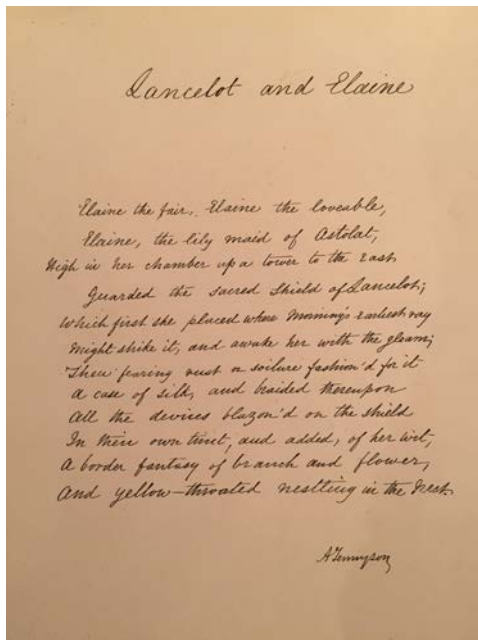 Lancelot and Elaine
Elaine the fair, Elaine the loveable,
Elaine, the lily maid of Astolat,
High in her chamber up a tower to the East
Guarded the sacred shield of Lancelot;
Which first she placed where Morning's earliest ray
Might strike it, and awake her with the gleam;
Then fearing rust or soilure fashion'd for it
A case of silk, and braided thereupon
All the devices blazon'd on the shield
In their own tinct, and added, of her wit,
A border fantasy of branch and flower,
And yellow-throated nestling in the nest.
A Tennyson